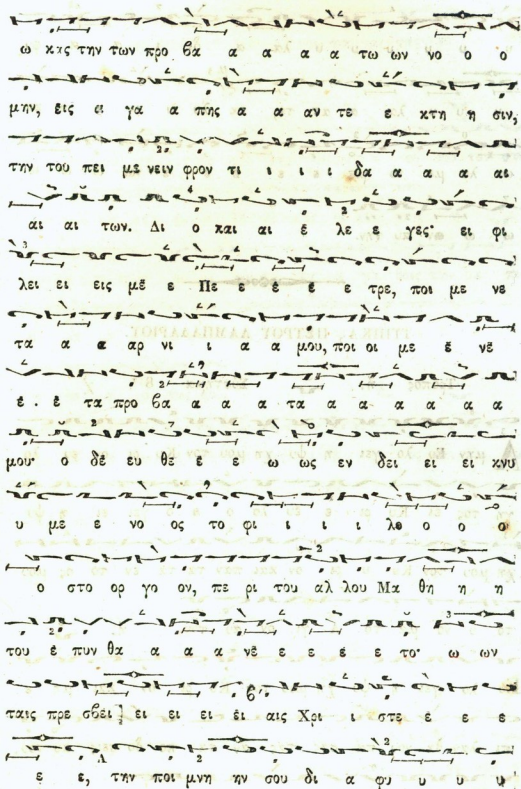 ω κης την των προ βα α α α α τω ων νο ο ο
μην, εις α γα α πης α α αν τε ε κτη η σιν,
την του πει με νειν φρον τι ι ι ι δα α α α αι
αι αι των. Δι ο και αι έ λε ε γες· ει φι
λει ει εις με ε Πε ε ε ε ε τρε, ποι με νε
τα α α αρ νι ι α α μου, ποι οι με έ νε
έ . ε τα προ βα α α α τα α α α α α α
μου· ο δε ευ θε ε ε ω ως εν δει ει ει κνυ
υ με έ νο ος το φι ι ι ι λο ο ο ο
ο στο ορ γο ον, πε ρι του αλ λου Μα θη η η
του έ πυν θα α α α νε ε ε έ ε το· ω ων
ταις πρε σβεί ει ει ει εί αις Χρι ι στε ε ε ε
ε ε, την ποι μνη ην σου δι α φυ υ υ υ